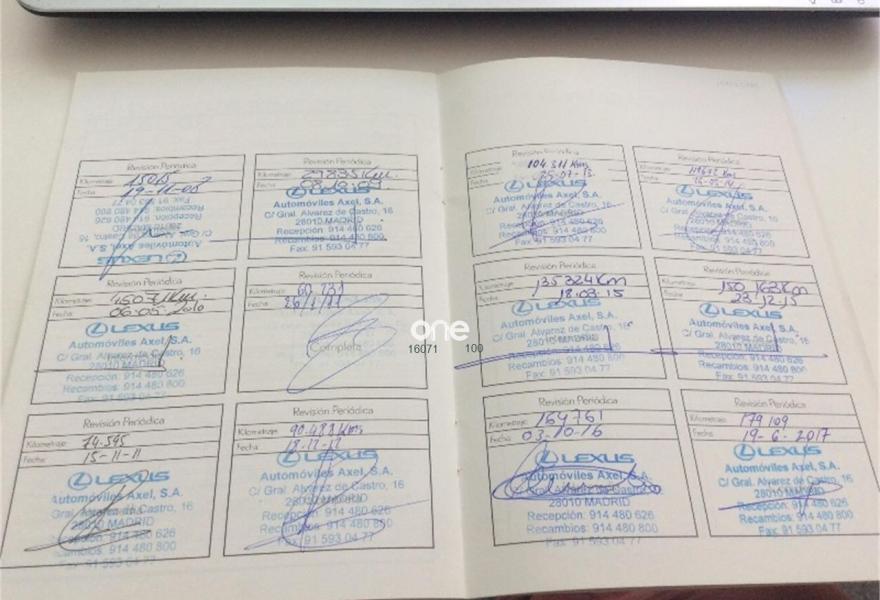 Revisión Periódica
Kilometraje: 15015
Fecha: 19-11-08
LEXUS
Automóviles Axel, S.A.
C/ Gral. Alvarez de Castro, 16
28010 MADRID
Recepción: 914 480 626
Recambios: 914 480 800
Fax: 91 593 04 77
Revisión Periódica
Kilometraje: 29835 Km.
Fecha
LEXUS
Automóviles Axel, S.A.
C/ Gral. Alvarez de Castro, 16
28010 MADRID
Recepción: 914 480 626
Recambios: 914 480 800
Fax: 91 593 04 77
Revisión Periódica
Kilometraje: 45031 Km.
Fecha: 06-05-2010
LEXUS
Automóviles Axel, S.A.
C/ Gral. Alvarez de Castro, 16
28010 MADRID
Recepción: 914 480 626
Recambios: 914 480 800
Revisión Periódica
Kilometraje: 60.731
Fecha: 26/1/11
Completa
Revisión Periódica
Kilometraje: 74.595
Fecha: 15-11-11
LEXUS
Automóviles Axel, S.A.
C/ Gral. Alvarez de Castro, 16
28010 MADRID
Recepción: 914 480 626
Recambios: 914 480 800
Fax: 91 593 04 77
Revisión Periódica
Kilometraje: 90.483 Kms
Fecha: 18-12-12
LEXUS
Automóviles Axel, S.A.
C/ Gral. Alvarez de Castro, 16
28010 MADRID
Recepción: 914 480 626
Recambios: 914 480 800
Fax: 91 593 04 77
Revisión Periódica
104.311 Kms
25-07-13
LEXUS
Automóviles Axel, S.A.
C/ Gral. Alvarez de Castro, 16
28010 MADRID
Recepción: 914 480 626
Recambios: 914 480 800
Fax: 91 593 04 77
Revisión Periódica
Kilometraje:
Fecha:
LEXUS
Automóviles Axel, S.A.
C/ Gral. Alvarez de Castro, 16
28010 MADRID
Recepción: 914 480 626
Recambios: 914 480 800
Fax: 91 593 04 77
Revisión Periódica
Kilometraje: 135324 Km
Fecha: 18-03-15
LEXUS
Automóviles Axel, S.A.
C/ Gral. Alvarez de Castro, 16
28010 MADRID
Recepción: 914 480 626
Recambios: 914 480 800
Fax: 91 593 04 77
Revisión Periódica
Kilometraje: 150.163 Km
Fecha: 23-12-15
LEXUS
Automóviles Axel, S.A.
C/ Gral. Alvarez de Castro, 16
28010 MADRID
Recepción: 914 480 626
Recambios: 914 480 800
Fax: 91 593 04 77
Revisión Periódica
Kilometraje: 164761
Fecha: 03-10-16
LEXUS
Automóviles Axel, S.A.
C/ Gral. Alvarez de Castro, 16
28010 MADRID
Recepción: 914 480 626
Recambios: 914 480 800
Fax: 91 593 04 77
Revisión Periódica
Kilometraje: 179109
Fecha: 19-6-2017
LEXUS
Automóviles Axel, S.A.
C/ Gral. Alvarez de Castro, 16
28010 MADRID
Recepción: 914 480 626
Recambios: 914 480 800
Fax: 91 593 04 77
one
16071 100